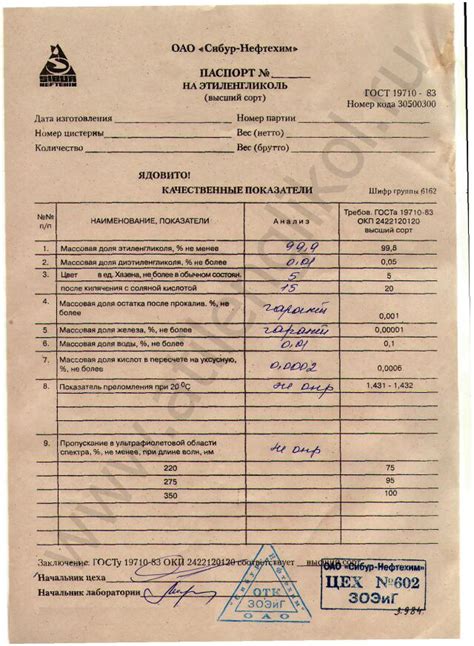 СИБУР
НЕФТЕХИМ
ОАО «Сибур-Нефтехим»
ПАСПОРТ №
НА ЭТИЛЕНГЛИКОЛЬ
(высший сорт)
ГОСТ 19710 - 83
Номер кода 30500300
Дата изготовления Номер партии
Номер цистерны Вес (нетто)
Количество Вес (брутто)
ЯДОВИТО!
КАЧЕСТВЕННЫЕ ПОКАЗАТЕЛИ Шифр группы 6162
№№ п/п НАИМЕНОВАНИЕ, ПОКАЗАТЕЛИ Анализ Требов. ГОСТа 19710-83 ОКП 2422120120 высший сорт
1. Массовая доля этиленгликоля, % не менее 99,9 99,8
2. Массовая доля диэтиленгликоля, % не более 0,01 0,05
3. Цвет в ед. Хазена, не более в обычном состоян. 5 5
после кипячения с соляной кислотой 15 20
4. Массовая доля остатка после прокалив. %, не более гарант 0,001
5 Массовая доля железа, %, не более гарант 0,00001
6 Массовая доля воды, %, не более 0,01 0,1
7. Массовая доля кислот в пересчете на уксусную, %, не более 0,0002 0,0006
8. Показатель преломления при 20 °С не опр 1,431 - 1,432
9. Пропускание в ультрафиолетовой области спектра, %, не менее, при длине волн, им не опр
220 75
275 95
350 100
Заключение: ГОСТу 19710-83 ОКП 2422120120 соответствует высший сорт
Начальник цеха
Начальник лаборатории
«Сибур-Нефтехим»
ОТК
ЗОЭиГ
ОАО
ОАО «Сибур-Нефтехим»
ЦЕХ №602
ЗОЭиГ
3.984
www.etilenglikol.ru